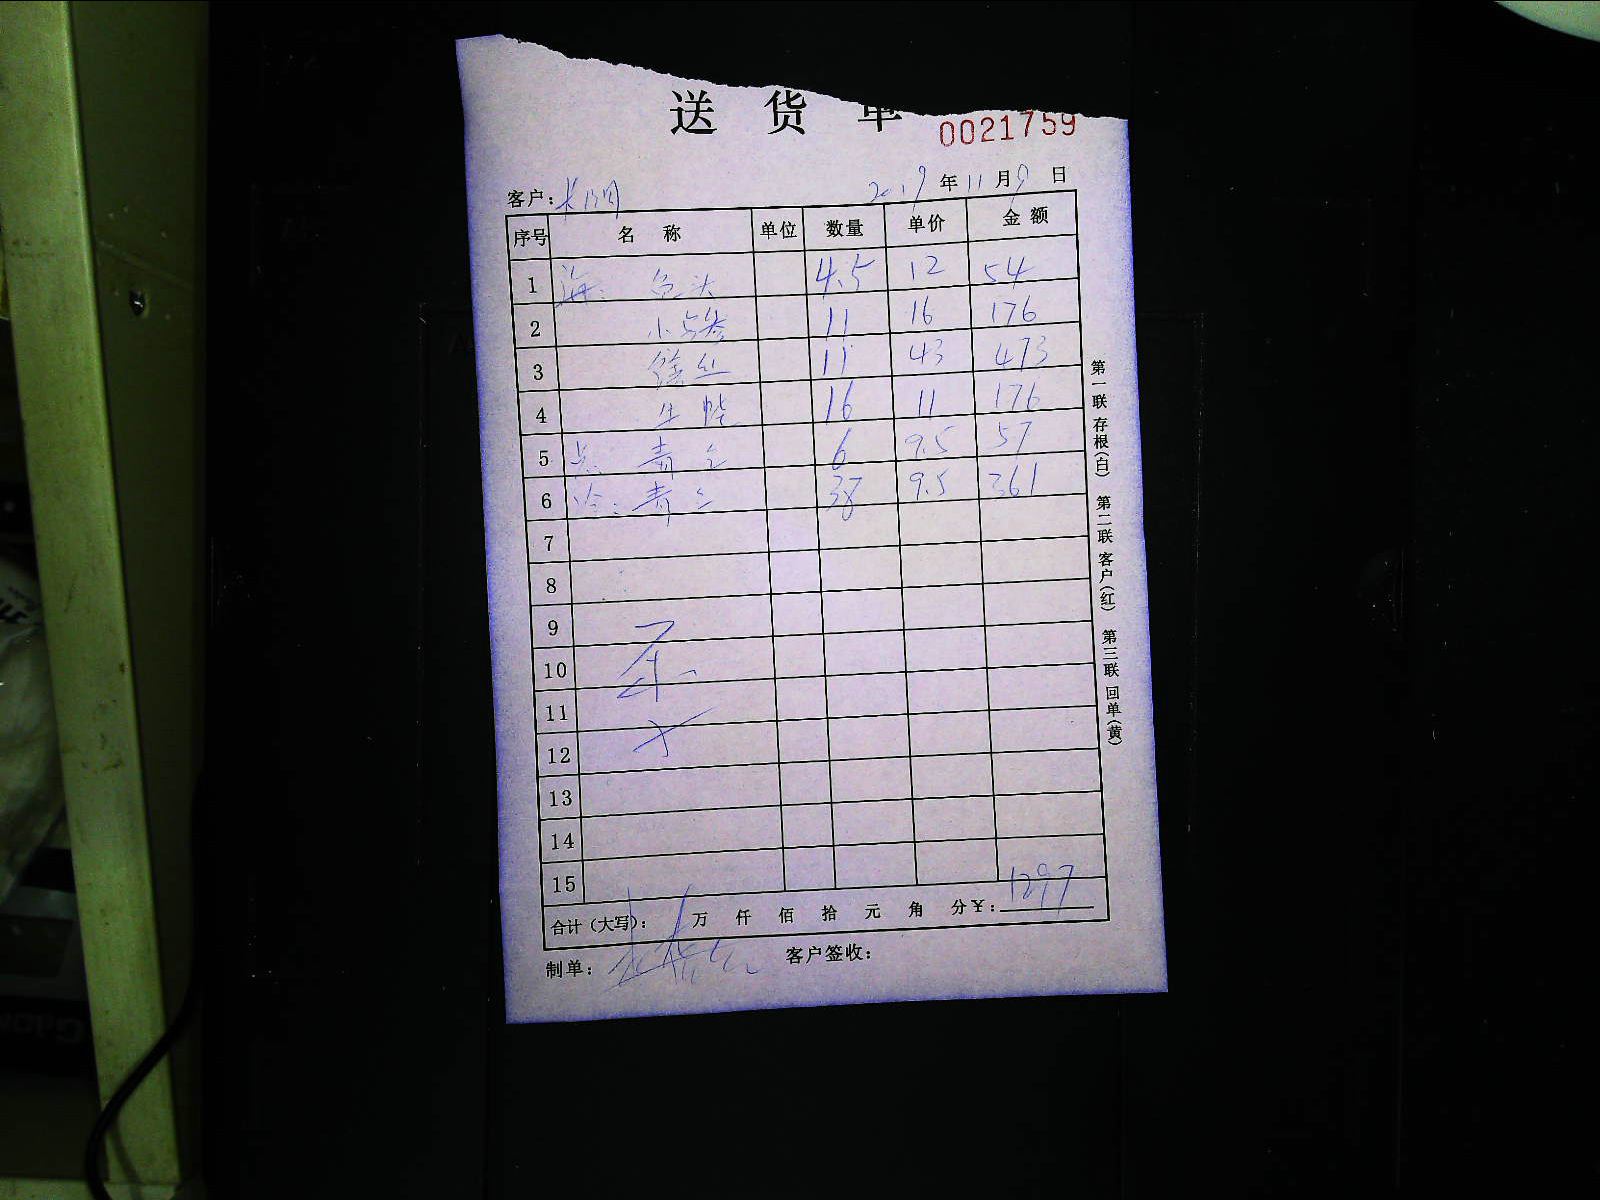 送 货 单
0021759
客户：
2019 年 11 月 9 日
序号 名 称 单位 数量 单价 金额
1 海： 鱼头 4.5 12 54
2 11 16 176
3 11 43 473
4 生 16 11 176
5 青 6 9.5 57
6 冷：青 38 9.5 361
7
8
9
10
11
12
13
14
15
合计（大写）： 万 仟 佰 拾 元 角 分￥：1297
制单： 客户签收：
第一联 存根（白） 第二联 客户（红） 第三联 回单（黄）